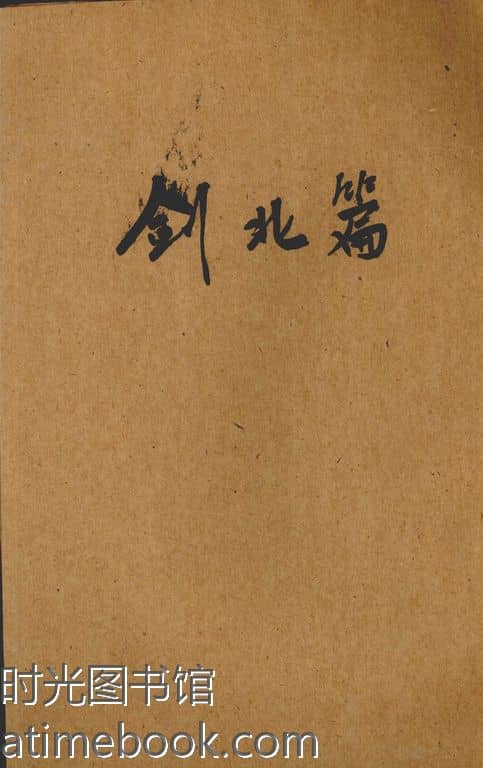 劍北篇
时光图书馆
atimebook.com